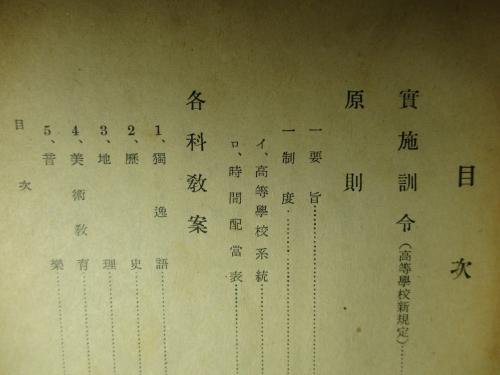 目次
實施訓令(高等學校新規定)
原則
一要旨
一制度
イ、高等學校系統
ロ、時間配當表
各科敎案
1、獨逸語
2、歷史
3、地理
4、美術敎育
5、音樂
目次